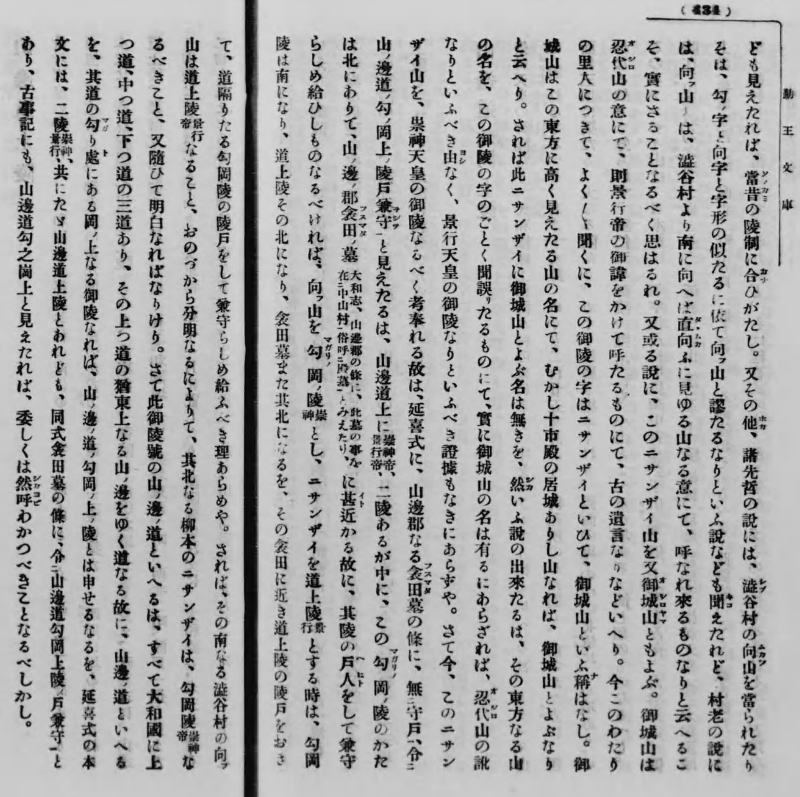 (434)
勤王文庫
ども見えたれば、當昔の陵制に合ひがたし。又その他、諸先哲の說には、澁谷村の向山を當られたり
そは、勾ノ字と向字と字形の似たるに依て向ッ山と謬たるなりといふ說なども聞えたれど、村老の說に
は、向ッ山〜は、澁谷村より南に向へば直向ふに見ゆる山なる意にて、呼なれ來るものなりと云へるこ
そ、實にさることなるべく思はるれ。又或る說に、このニサンザイ山を又御城山ともよぶ。御城山は
忍代山の意にて、則景行帝の御諱をかけて呼たるものにて、古の遺言なりなどいへり。今このわたり
の里人につきて、よく〱聞くに、この御陵の字はニサンザイといひて、御城山といふ稱はなし。御
城山はこの東方に高く見えたる山の名にて、むかし十市殿の居城ありし山なれば、御城山とよぶなり
と云へり。されば此ニサンザイに御城山とよぶ名は無きを、然いふ說の出來たるは、その東方なる山
の名を、この御陵の字のごとく聞誤リたるものにて、實に御城山の名は有るにあらざれば、忍代山の訛
なりといふべき由なく、景行天皇の御陵なりといふべき證據もなきにあらずや。さて今、このニサン
ザイ山を、祟神天皇の御陵なるべく考奉れる故は、延喜式に、山邊郡なる衾田墓の條に、無ニ守戶一、令ニ
山ノ邊道ノ勾ノ岡上ノ陵戶兼守一と見えたるは、山邊道上に祟神帝、景行帝、二陵あるが中に、この勾ノ岡ノ陵のかた
は北にありて、山ノ邊ノ郡衾田ノ墓大和志、山邊郡の條に、此墓の事を在ニ中山村一俗呼ニ殿墓一とみえたり、に甚近かる故に、其陵の戶人をして兼守
らしめ給ひしものなるべければ、向ッ山を勾ノ岡ノ陵祟神とし、ニサンザイを道上陵景行とする時は、勾岡
陵は南になり、道上陵その北になり、衾田墓また其北になるを、その衾田に近き道上陵の陵戶をおき
て、道隔りたる勾岡陵の陵戶をして兼守らしめ給ふべき理あらめや。されば、その南なる澁谷村の向ッ
山は道上陵景行帝なること、おのづから分明なるによりて、其北なる柳本のニサンザイは、勾岡陵祟神帝な
るべきこと、又隨ひて明白なればなりけり。さて此御陵號の山ノ邊ノ道といへるは、すべて大和國に上
つ道、中つ道、下つ道の三道あり、その上つ道の猶東上なる山ノ邊をゆく道なる故に、山邊ノ道といへる
を、其道の勾り處にある岡ノ上なる御陵なれば、山ノ邊ノ道ノ勾岡ノ上ノ陵とは申せるなるを、延喜式の本
文には、二陵祟神、景行、共にたゞ山邊道上陵とあれども、同式衾田墓の條に、令ニ山邊道勾岡上陵ノ戶兼守一と
あり、古事記にも、山邊道勾之岡上と見えたれば、委しくは然呼わかつべきことなるべしかし。